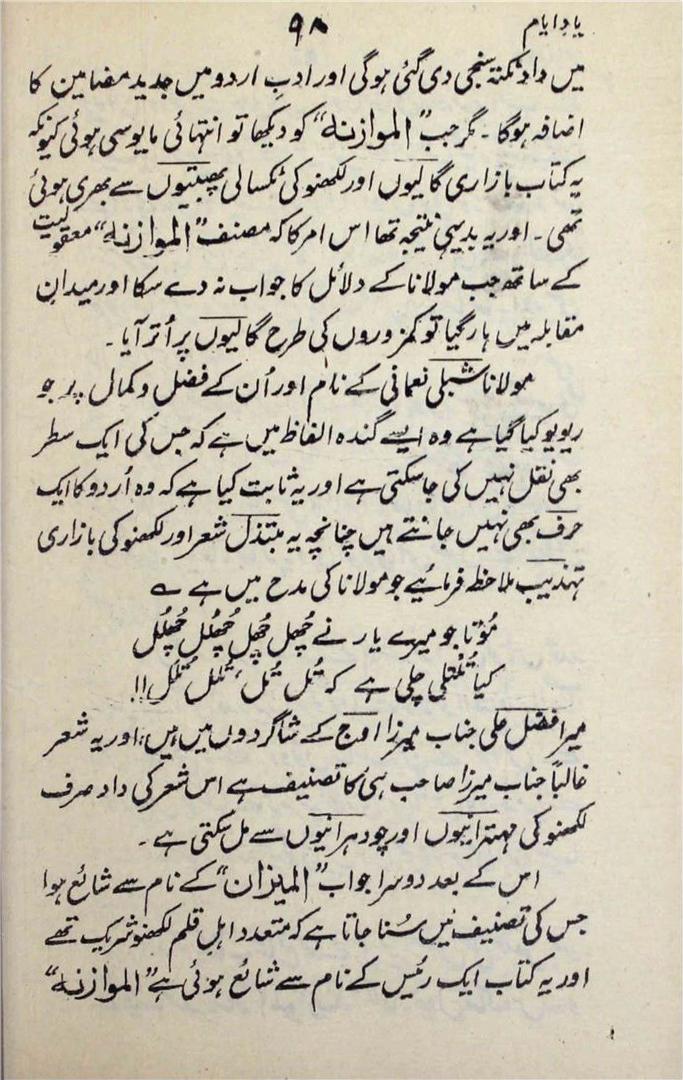 یادِ ایام
۹۸
میں داد نکتہ سنجی دی گئی ہوگی اور ادبِ اردو میں جدید مضامین کا
اضافہ ہوگا ۔ مگر جب "الموازنہ" کو دیکھا تو انتہائی مایوسی ہوئی کیونکہ
یہ کتاب بازاری گالیوں اور لکھنو کی ٹکسالی پھبتیوں سے بھری ہوئی
تھی ۔ اور یہ بدیہی نتیجہ تھا اس امر کا کہ مصنف "الموازنہ" معقولیت
کے ساتھ جب مولانا کے دلائل کا جواب نہ دے سکا اور میدانِ
مقابلہ میں ہار گیا تو کمزوروں کی طرح گالیوں پر اُتر آیا ۔
مولانا شبلی نعمانی کے نام اور اُن کے فضل و کمال پر جو
ریویو کیا گیا ہے وہ ایسے گندہ الفاظ میں ہے کہ جس کی ایک سطر
بھی نقل نہیں کی جا سکتی ہے اور یہ ثابت کیا ہے کہ وہ اُردو کا ایک
حرف بھی نہیں جانتے ہیں چنانچہ یہ مبتذل شعر اور لکھنو کی بازاری
تہذیب ملاحظہ فرمائیے جو مولانا کی مدح میں ہے ؎
مُوتا جو میرے یار نے چُھل چُھل چُھلُل چُھلُل
کیا تُتلی چلی ہے کہ تُل تُل، تُلل تُلل!!
میر افضل علی جناب میرزا اوج کے شاگردوں میں ہیں، اور یہ شعر
غالباً جناب میرزا صاحب ہی کا تصنیف ہے اس شعر کی داد صرف
لکھنو کی مہترانیوں اور چودہرانیوں سے مل سکتی ہے ۔
اس کے بعد دوسرا جواب "المیزان" کے نام سے شائع ہوا
جس کی تصنیف میں سُنا جاتا ہے کہ متعدد اہلِ قلم لکھنو شریک تھے
اور یہ کتاب ایک رئیس کے نام سے شائع ہوئی ہے "الموازنہ"